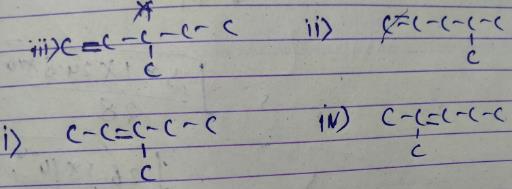 iii) C=C-C-C-C
C
ii) C=C-C-C-C
C
i) C-C=C-C-C
C
iv) C-C=C-C-C
C